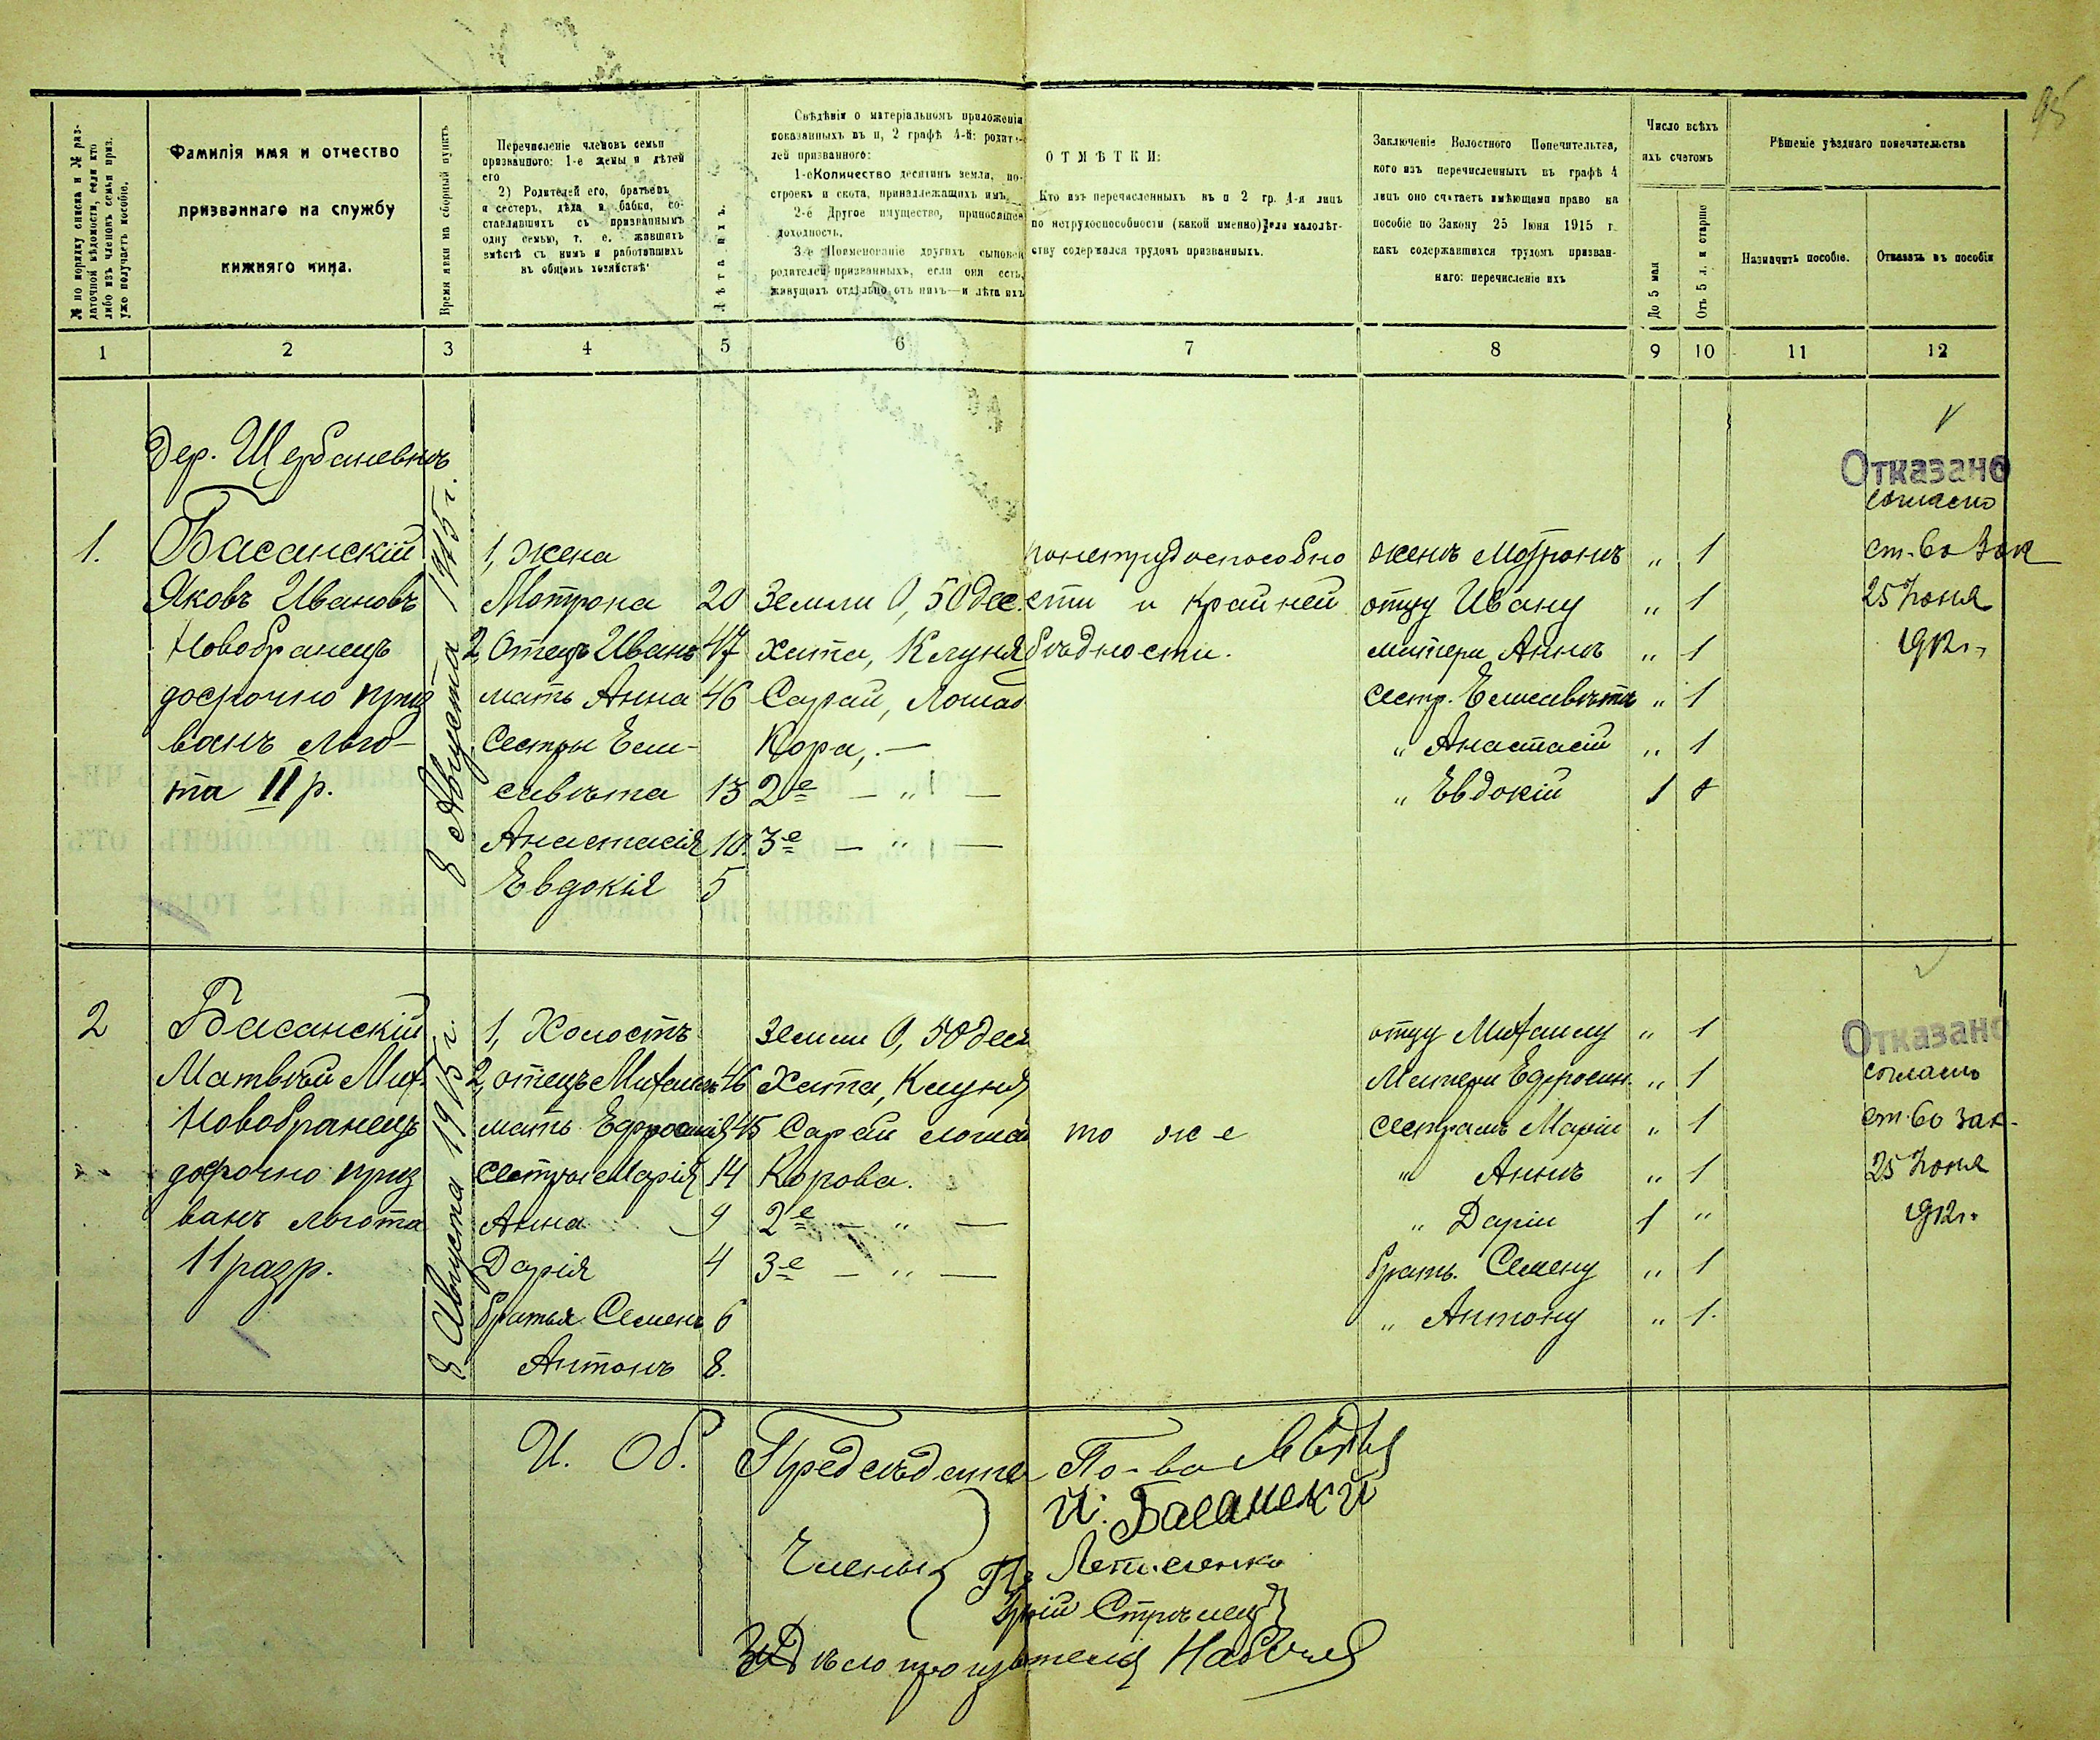 95
№ по порядку списка и № раз-
даточной вѣдомости, если кто
либо изъ членовъ семьи приз.
уже получаетъ пособіе.
Фамилія имя и отчество
призваннаго на службу
нижняго чина.
Время явки на сборный пунктъ
Перечисленіе членовъ семьи
призваннаго: 1-е жены и дѣтей
его
2) Родителей его, братьевъ
и сестеръ, дѣда и бабки, со-
ставлявшихъ съ призваннымъ
одну семью, т. е. жившихъ
вмѣстѣ съ нимъ и работавшихъ
въ общемъ хозяйствѣ
Лѣта ихъ.
Свѣдѣнія о матеріальномъ приложеніи
показанныхъ въ п, 2 графѣ 4-й: родите-
лей призваннаго:
1-е Количество десятинъ земли, по-
строекъ и скота, принадлежащихъ имъ.
2-е Другое имущество, приносящее
доходность.
3-е Поименованіе другихъ сыновей
родителей призванныхъ, если они есть,
живущихъ отдѣльно отъ нихъ—и лѣта ихъ
ОТМѢТКИ:
Кто изъ перечисленныхъ въ п 2 гр. 4-я лицъ
по нетрудоспособности (какой именно) или малолѣт-
ству содержался трудомъ призванныхъ.
Заключеніе Волостного Попечительтва,
кого изъ перечисленныхъ въ графѣ 4
лицъ оно считаетъ имѣющими право на
пособіе по Закону 25 Іюня 1915 г.
какъ содержавшихся трудомъ призван-
наго: перечисленіе ихъ
Число всѣхъ
ихъ счетомъ
До 5 мая
Отъ 5 л. и старше
Рѣшеніе уѣзднаго попечительства
Назначить пособіе.
Отказать въ пособіи
1 2 3 4 5 6 7 8 9 10 11 12
Дер. Щербаневкѣ
1.
Басанскій
Яковъ Ивановъ
Новобранецъ
досрочно приз
ванъ льго-
та II р.
8 Августа 1915 г.
1, жена
Мотрона 20
2, Отецъ Иванъ 47
мать Анна 46
Сестры Ели-
савѣта 13
Анастасія 10.
Евдокія 5
Земли 0,50 дес.
Хата, Клуня
Сарай, Лошад
Кора, . —
2е — „ —
3е — „ —
по нетрудоспособно
сти и крайней
бѣдности.
женѣ Мотронѣ „ 1
отцу Ивану „ 1
матери Аннѣ „ 1
сестр. Елисавѣтѣ „ 1
„ Анастасіи „ 1
„ Евдокіи 1
Отказано
согласно
ст. 60 Зак
25 Іюня
1912 г.
2
Басанскій
Матвѣй Мих.
Новобранецъ
досрочно приз
ванъ льгота
11 разр.
8 Августа 1915 г.
1, Холостъ
2, отецъ Михаилъ 46
мать Ефросинія 45
сестры Марія 14
Анна 9
Дарія 4
братья Семенъ 6
Антонъ 8.
Земли 0,50 дес
Хата, Клуня
Сарай лошад
Корова.
2е — „ —
3е — „ —
то же
отцу Михаилу „ 1
Матери Ефросин. „ 1
сестрамъ Маріи „ 1
„ Аннѣ „ 1
„ Даріи 1 „
брать. Семену „ 1
„ Антону „ 1.
Отказано
согласно
ст. 60 зак.
25 Іюня
1912 г.
И. Об. Предсѣдателя По-ва
И. Басански
Члены
Стрѣлец
За Дѣлопроизвотеля